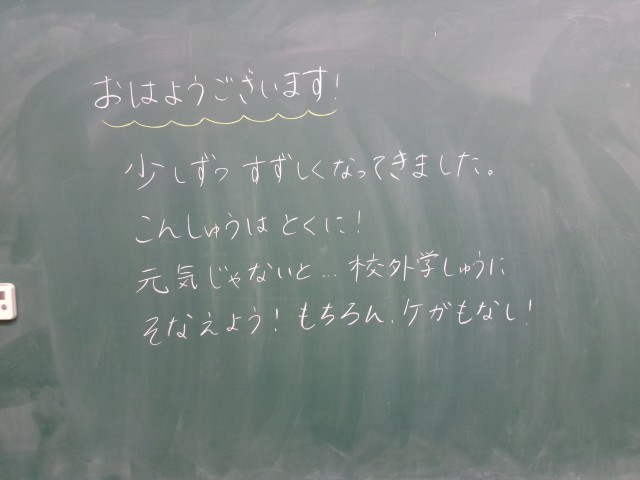 おはようございます!
少しずつ すずしくなってきました。
こんしゅうは とくに!
元気じゃないと... 校外学しゅうに
そなえよう! もちろん、ケガもなし!